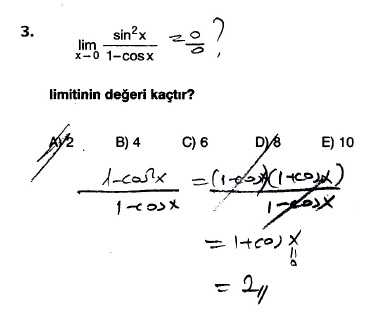 3.
lim x→0 sin²x / 1-cosx = 0/0 ?
limitinin değeri kaçtır?
A) 2 B) 4 C) 6 D) 8 E) 10
1-cos²x / 1-cosx = (1-cosx)(1+cosx) / 1-cosx
= 1+cosx
0
= 2//